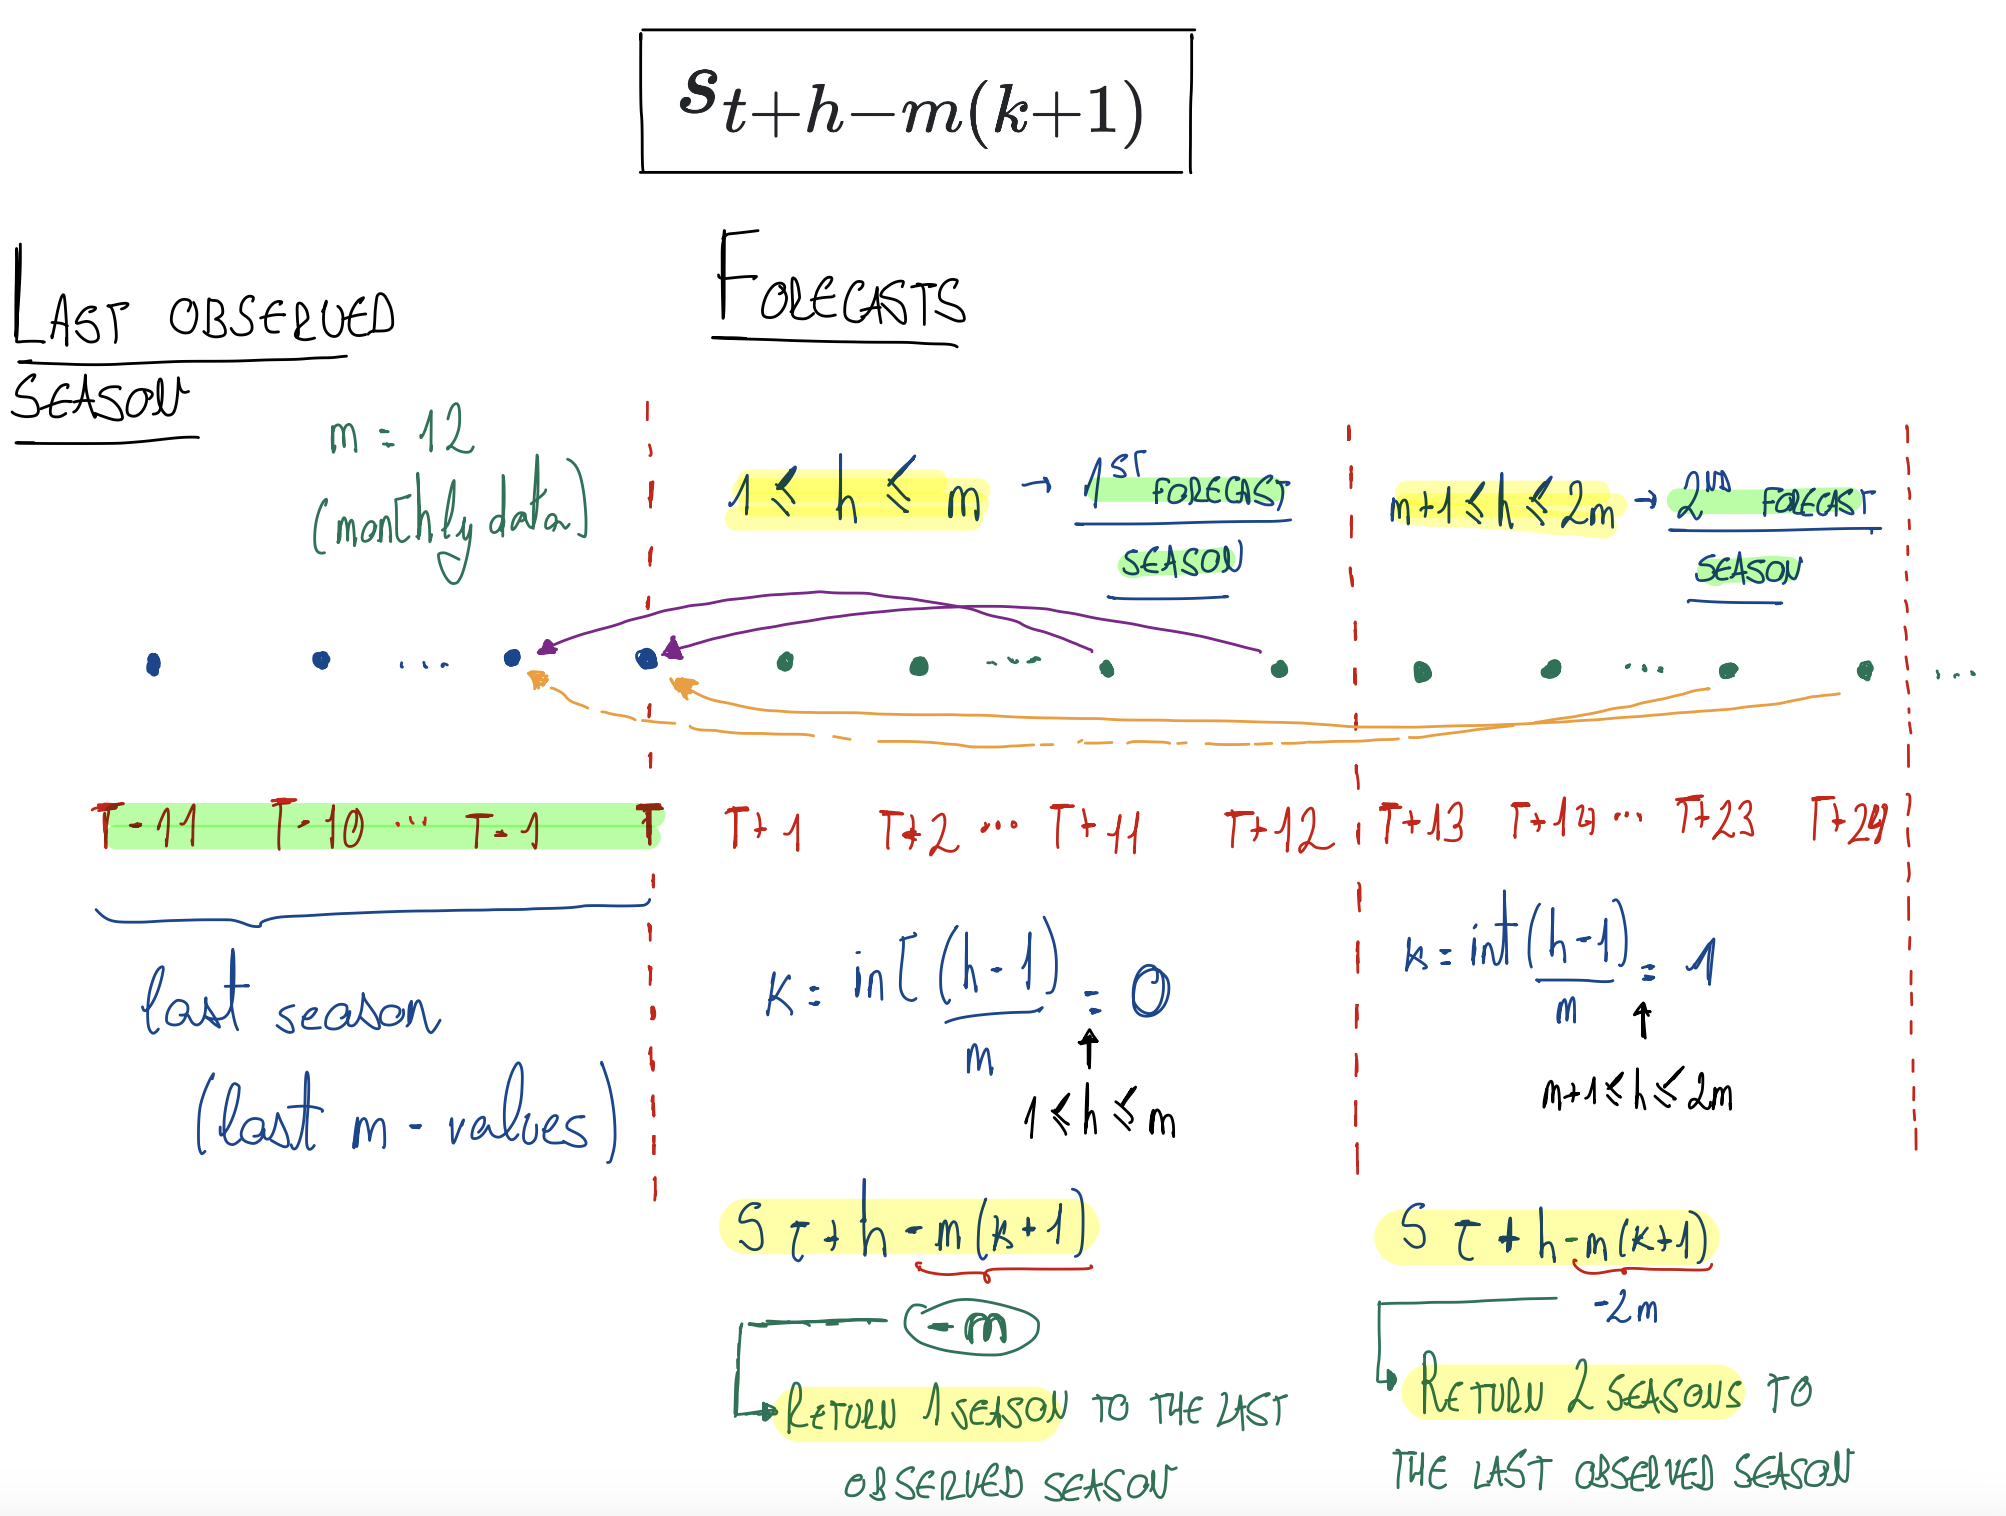 s_{t+h-m(k+1)}
LAST OBSERVED
SEASON
FORECASTS
m = 12
(monthly data)
1 ≤ h ≤ m → 1ST FORECAST
SEASON
m+1 ≤ h ≤ 2m → 2ND FORECAST
SEASON
... ... ... ...
T-11 T-10 ... T-1 T T+1 T+2 ... T+11 T+12 T+13 T+14 ... T+23 T+24
last season
(last m - values)
K = int (h-1)/m = 0
↑
1 ≤ h ≤ m
K = int (h-1)/m = 1
↑
m+1 ≤ h ≤ 2m
S T+h-m(k+1)
-m
RETURN 1 SEASON TO THE LAST
OBSERVED SEASON
S T+h-m(k+1)
-2m
RETURN 2 SEASONS TO
THE LAST OBSERVED SEASON